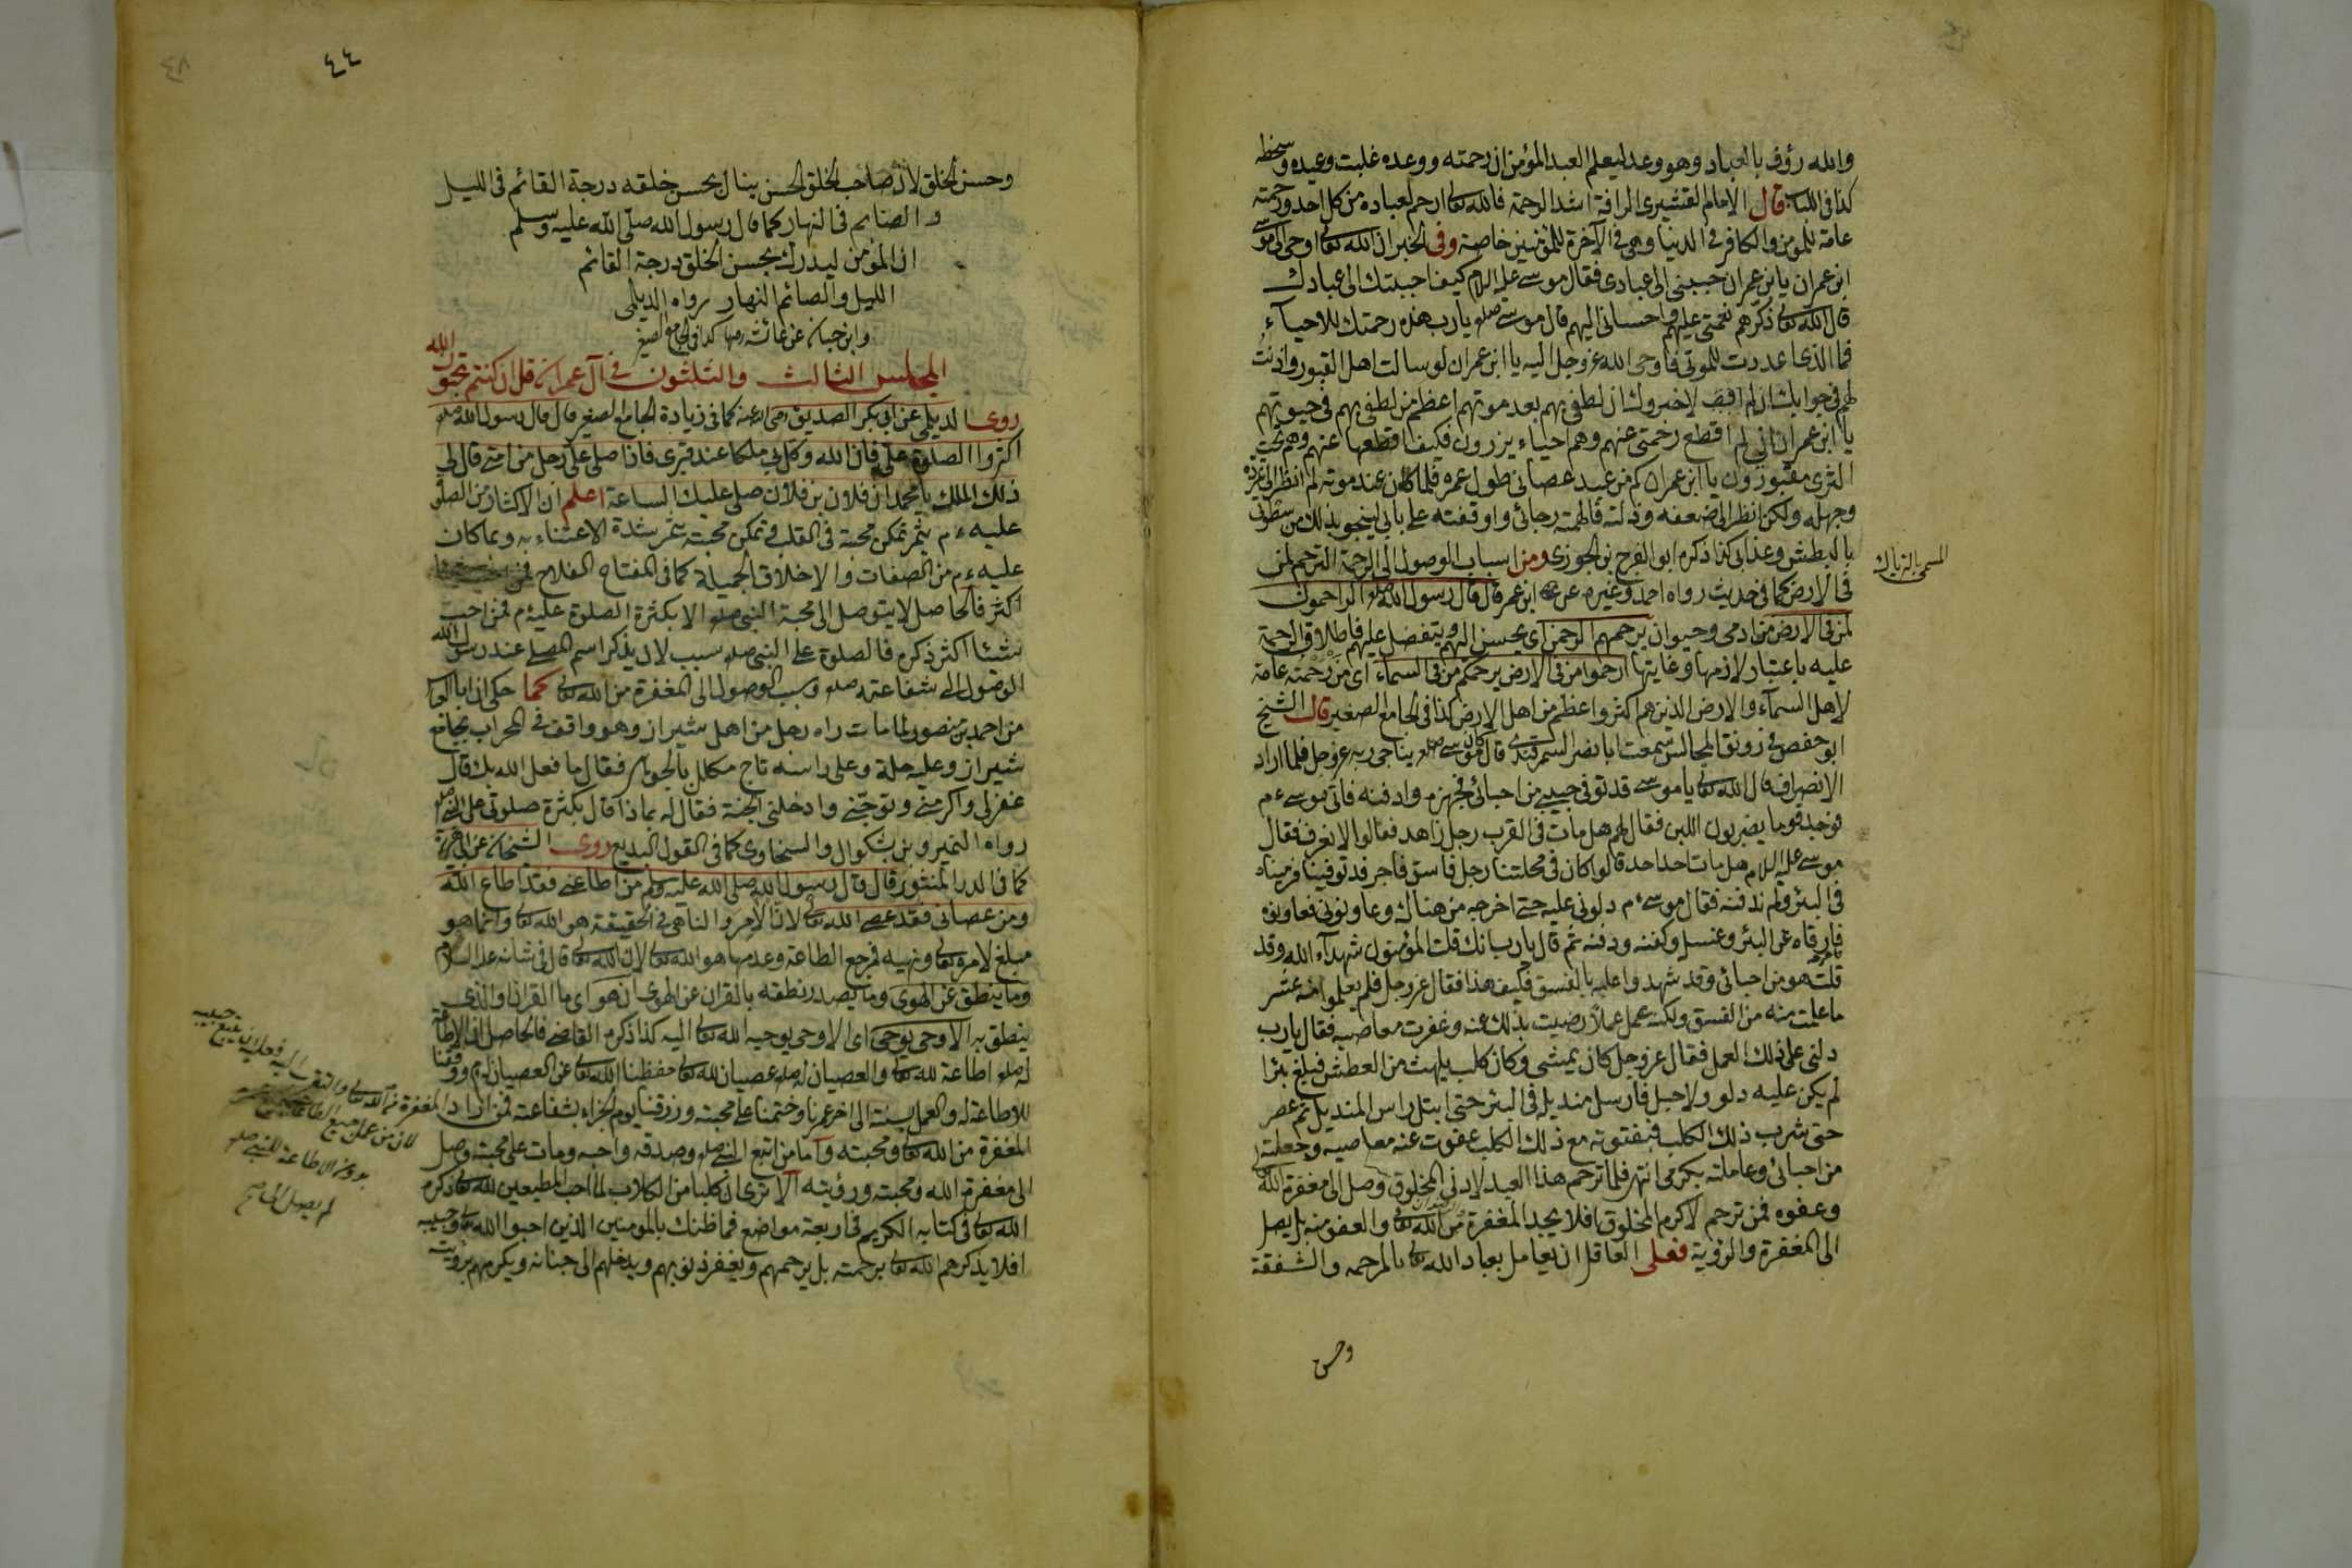 والله رؤف بالعباد وهو وعد ليعلم العبد المؤمن ان رحمته ووعده غلبت وعيده وسخطه
كذا فى اللباب قال الامام القشيرى الرافة اشد الرحمة فالله تعالى ارحم لعباده من كل احد ورحمته
عامة للمؤمن والكافر فى الدنيا وهى فى الآخرة للمؤمنين خاصة وفى الخبر ان الله تعالى اوحى الى موسى
ابن عمران يا ابن عمران حببنى الى عبادى فقال موسى عليه السلام كيف احببتك الى عبادك
قال الله تعالى ذكرهم نعمتى عليهم واحسانى اليهم قال موسى صلم يا رب هذه رحمتك للاحياء
فما الذى اعددت للموتى فاوحى الله عز وجل اليه يا ابن عمران لو سالت اهل القبور واذنت
لهم فى جوابك لاخبروك ان لطفى بهم بعد موتهم اعظم من لطفى بهم فى حيوتهم
يا ابن عمران انى لم اقطع رحمتى عنهم وهم احياء يرزقون فكيف اقطعها عنهم وهم تحت
الثرى مقبورون يا ابن عمران كم من عبد عصانى طول عمره فلما كان عند موته لم انظر الى
وجهله ولكن انظر الى ضعفه وذلته فالهمته رجائى واوقفته على بابى لينجو بذلك من سطوتى
بالبطش وعذابى كذا ذكره ابو الفرج بن الجوزى ومن اسباب الوصول الى الرحمة الترحم لمن
المسمى بالترياك
فى الارض كما فى حديث رواه احمد وغيره عن ابن عمر قال قال رسول الله صلم الراحمون
لمن فى الارض من ادمى وحيوان يرحمهم الرحمن اى يحسن اليهم ويتفضل عليهم فاطلاق الرحمة
عليه باعتبار لازمها وغايتها ارحموا من فى الارض يرحمكم من فى السماء اى من رحمته عامة
لاهل السماء والارض الذين هم اكثر واعظم من اهل الارض كذا فى الجامع الصغير قال الشيخ
ابو حفص فى رونق المجالس سمعت ابا نصر السمرقندى قال كان موسى صلم يناجى ربه عز وجل فلما اراد
الانصراف قال الله تعالى يا موسى قد توفى حبيبى من احبائى فجهزه وادفنه فاتى موسى ء م
فوجد قوما يضربون اللبن فقال لهم هل مات فى القرب رجل زاهد فقالوا لا نعرف فقال
موسى عليه السلام هل مات احد احد قالوا كان فى محلتنا رجل فاسق فاجر قد توفى فرميناه
فى البئر ولم ندفنه فقال موسى ء م دلونى عليه حتى اخرجه من هناك وعاونونى فعاونوه
فارقاه عن البئر وغسله وكفنه ودفنه ثم قال يا رب انك قلت المؤمنون شهداء الله وقد
قلت هو من احبائى وقد شهدوا عليه بالفسق فكيف هذا فقال عز وجل فلم يعلموا منه عشر
ما علمت منه من الفسق ولكنه عمل عملا رضيت بذلك عنه وغفرت معاصيه فقال يا رب
دلنى على ذلك العمل فقال عز وجل كان يمشى وكان كلب يلهث من العطش فبلغ بئرا
لم يكن عليه دلو ولا حبل فارسل منديله فى البئر حتى ابتل راس المنديل ثم عصر
حتى شرب ذلك الكلب فبفتوته مع ذلك الكلب عفوت عنه معاصيه وجعلته
من احبائى وعاملته بكرمى انتهى فلما ترحم هذا العبد لادنى المخلوق وصل الى مغفرة الله
وعفوه فمن ترحم لاكرم المخلوق افلا يجد المغفرة من الله تعالى والعفو منه بل يصل
الى المغفرة والرؤية فعلى العاقل ان يعامل بعباد الله تعالى بالمرحمة والشفقة
وحسن
٤٤
وحسن الخلق لان صاحب الخلق الحسن ينال بحسن خلقه درجة القائم فى الليل
والصائم فى النهار كما قال رسول الله صلى الله عليه وسلم
ان المؤمن ليدرك بحسن الخلق درجة القائم
الليل والصائم النهار رواه الديلمى
وابن حبان عن عائشة رضها كذا فى الجامع الصغير
المجلس الثالث والثلثون فى آل عمران قل ان كنتم تحبون الله
روى الديلمى عن ابى بكر الصديق رضى الله عنه كما فى زيادة الجامع الصغير قال قال رسول الله صلم
اكثروا الصلوة على فان الله وكل بى ملكا عند قبرى فاذا صلى على رجل من امتى قال لى
ذلك الملك يا محمد ان فلان بن فلان صلى عليك الساعة اعلم ان الاكثار من الصلوة
عليه ء م يثمر تمكن محبته فى القلب وتمكن محبته يثمر شدة الاعتناء به وبما كان
عليه ء م من الصفات والاخلاق الجميلة كما فى المفتاح الفلاح
اكثر فالحاصل لا يتوصل الى محبة النبى صلم الا بكثرة الصلوة عليه ء م فمن احب
شيئا اكثر ذكره فالصلوة على النبى صلم سبب لان يذكر اسم المصلى عند رسول الله
الوصول الى شفاعته صلم وسبب الوصول الى المغفرة من الله تعالى كما حكى ان ابا العباس
من احمد بن منصور لما مات راه رجل من اهل شيراز وهو واقف فى المحراب بجامع
شيراز وعليه حلة وعلى راسه تاج مكلل بالجواهر فقال ما فعل الله بك قال
غفر لى واكرمنى وتوجنى وادخلنى الجنة فقال له بماذا قال بكثرة صلوتى على النبى صلم
رواه النميرى وبن بشكوال والسخاوى كما فى القول البديع روى الشيخان عن ابى هريرة
كما فى الدر المنثور قال قال رسول الله صلى الله عليه وسلم من اطاعنى فقد اطاع الله
ومن عصانى فقد عصى الله تعالى لان الآمر والناهى فى الحقيقة هو الله تعالى وانما هو
مبلغ لامره تعالى ونهيه فمرجع الطاعة وعدمها هو الله تعالى لان الله تعالى قال فى شانه عليه السلام
وما ينطق عن الهوى وما يصدر نطقه بالقران عن الهوى ان هو اى ما القران او الذى
ينطق به الا وحى يوحى اى الا وحى يوحيه الله تعالى اليه كذا ذكره القاضى فالحاصل ان الاطاعة
له صلم اطاعة لله تعالى والعصيان له صلم عصيان لله تعالى حفظنا الله تعالى عن العصيان له ووفقنا
للاطاعة له والعمل بسنته الى اخر عمرنا وختمنا على محبته ورزقنا يوم الجزاء بشفاعته فمن اراد
المغفرة من الله تعالى ومحبته وآمن اتبع النبى صلم وصدقه واحبه ومات على محبته وصل
الى مغفرة الله ومحبته ورؤيته الا ترى ان كلبا من الكلاب لما احب المطيعين لله تعالى ذكره
الله تعالى فى كتابه الكريم فى اربعة مواضع فما ظنك بالمومنين الذين احبوا الله تعالى وحبيبه
افلا يذكرهم الله تعالى برحمته بل يرحمهم ويغفر ذنوبهم ويدخلهم الى جنانه ويكرمهم برؤيته
المغفرة من الله تعالى والتقرب اليه فعليه ان يتبع حبيبه
لان من عمل جميع الطاعات
بدون الاطاعة للنبى صلم